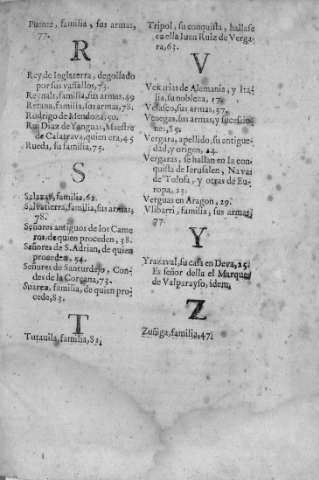 Puente, familia, sus armas,
77.
R
Rey de Inglaterra, degollado
por sus vasallos, 73.
Reynals, familia, sus armas, 49
Retana, familia, sus armas, 78.
Rodrigo de Mendoza, 90.
Rui Diaz de Yanguas, Maestre
de Calatrava, quien era, 45
Rueda, su familia, 75.
S
Salazar, familia, 62.
Salvatierra, familia, sus armas,
78.
Señores antiguos de los Came
ros, de quien proceden, 38.
Señores de S. Adrian, de quien
proceden, 54.
Señores de Santurdejo, Con-
des de la Corzana, 73.
Suarez, familia, de quien pro-
cede, 83.
T
familia, 82.
Tripol, su conquista, hallase
en ella Iuan Ruiz de Verga-
ra, 63.
V
de Alemania, y Ita-
lia, su nobleza, 17.
Velasco, sus armas, 57.
Venegas, sus armas, y sucessio-
nes, 89.
Vergara, apellido, su antigue-
dad, y origen, 24.
Vergaras, se hallan en la con-
quista de Ierusalen, Navas
de Tolosa, y otras de Eu-
ropa, 23.
Verguas en Aragon, 29.
Vlibarri, familia, sus armas,
77.
Y
Yrazaval, su casa en Deva, 25.
Es señor della el Marques
de Valparayso, idem.
Z
Zuñiga, familia, 47.